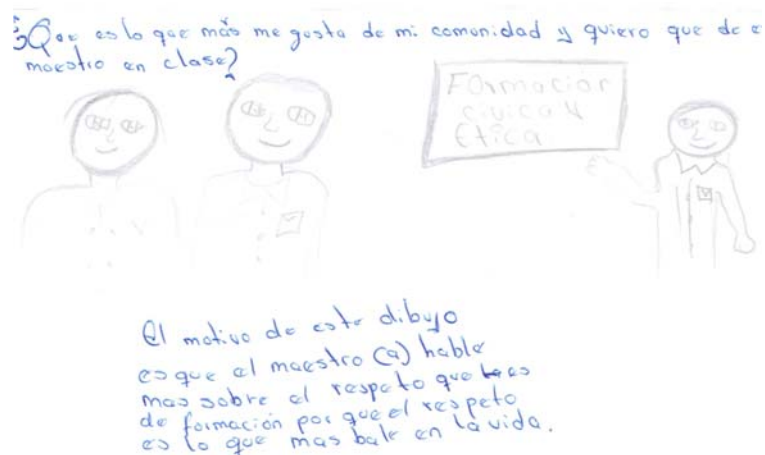 ¿Que es lo que más me gusta de mi comunidad y quiero que de e
maestro en clase?
Formacion
civica y
Etica
El motivo de este dibujo
es que el maestro (a) hable
mas sobre el respeto que es
de formación por que el respeto
es lo que mas bale en la vida.